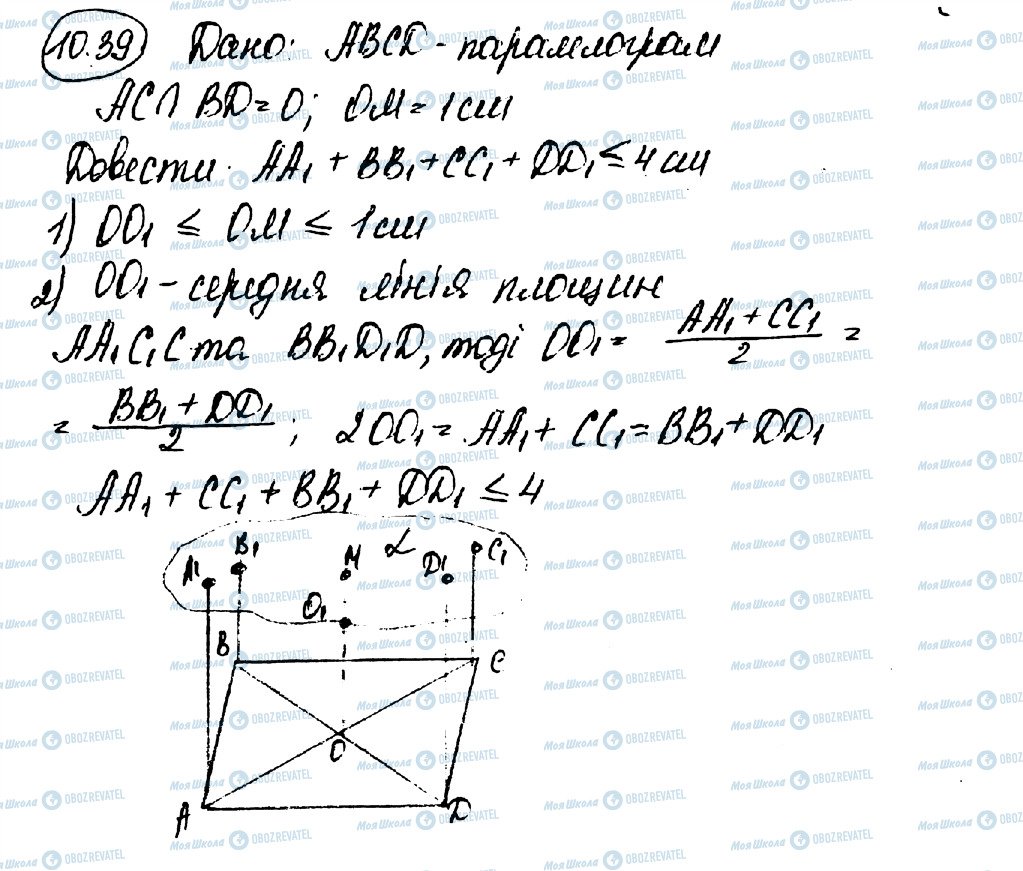 10.39 Дано: ABCD - паралелограм
AC∩BD=O; OM=1см
Довести: AA₁ + BB₁ + CC₁ + DD₁ ≤ 4 см
1) OO₁ ≤ OM ≤ 1см
2) OO₁ - середня лінія площин
AA₁C₁C та BB₁D₁D, тоді OO₁ = (AA₁ + CC₁)/2 =
= (BB₁ + DD₁)/2 ; 2OO₁ = AA₁ + CC₁ = BB₁ + DD₁
AA₁ + CC₁ + BB₁ + DD₁ ≤ 4
A₁ B₁ M α D₁ C₁
O₁
B C
O
A D
Моя Школа OBOZREVATEL